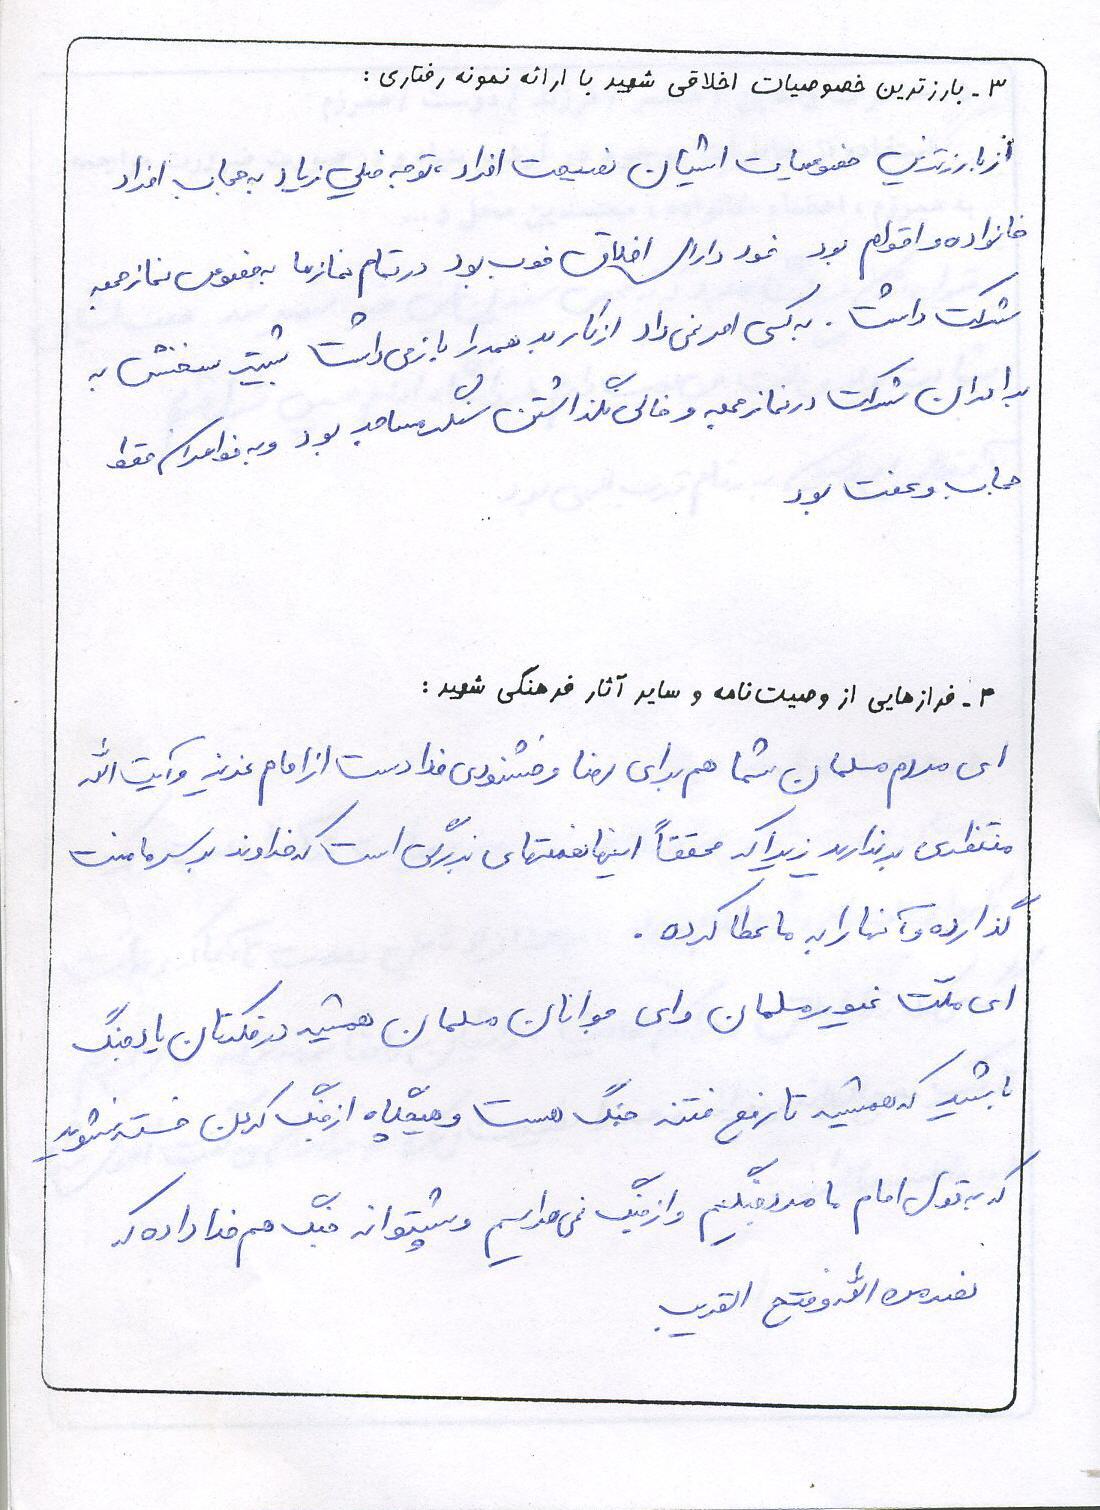 ۳- بارزترین خصوصیات اخلاقی شهید با ارائه نمونه رفتاری:
از بارزترین خصوصیات ایشان نصیحت افراد، توجه خیلی زیاد به حجاب افراد
خانواده و اقوام بود خود دارای اخلاق خوب بود در تمام نمازها به خصوص نماز جمعه
شرکت داشت. به کسی امر نمی داد از کار بد همه را باز می داشت بیشتر سخنش به
برادران شرکت در نماز جمعه و خالی نگذاشتن سنگر مساجد بود و به خواهران حفظ
حجاب و عفت بود
۴- فرازهایی از وصیت نامه و سایر آثار فرهنگی شهید:
ای مردم مسلمان شما هم برای رضا و خشنودی خدا دست از امام عزیز و آیت الله
منتظری برندارید زیرا که محققاً اینها نعمتهای بزرگی است که خداوند بر سر ما منت
گذارده و آنها را به ما عطا کرده.
ای ملّت غیور مسلمان و ای جوانان مسلمان همیشه در فکرتان یاد جنگ
باشید که همیشه تا رفع فتنه جنگ هست و هیچگاه از جنگ کردن خسته نشوید
که به قول امام ما مرد جنگیم و از جنگ نمی هراسیم و پشتوانه جنگ هم خدا داده که
نصر من الله و فتح القریب